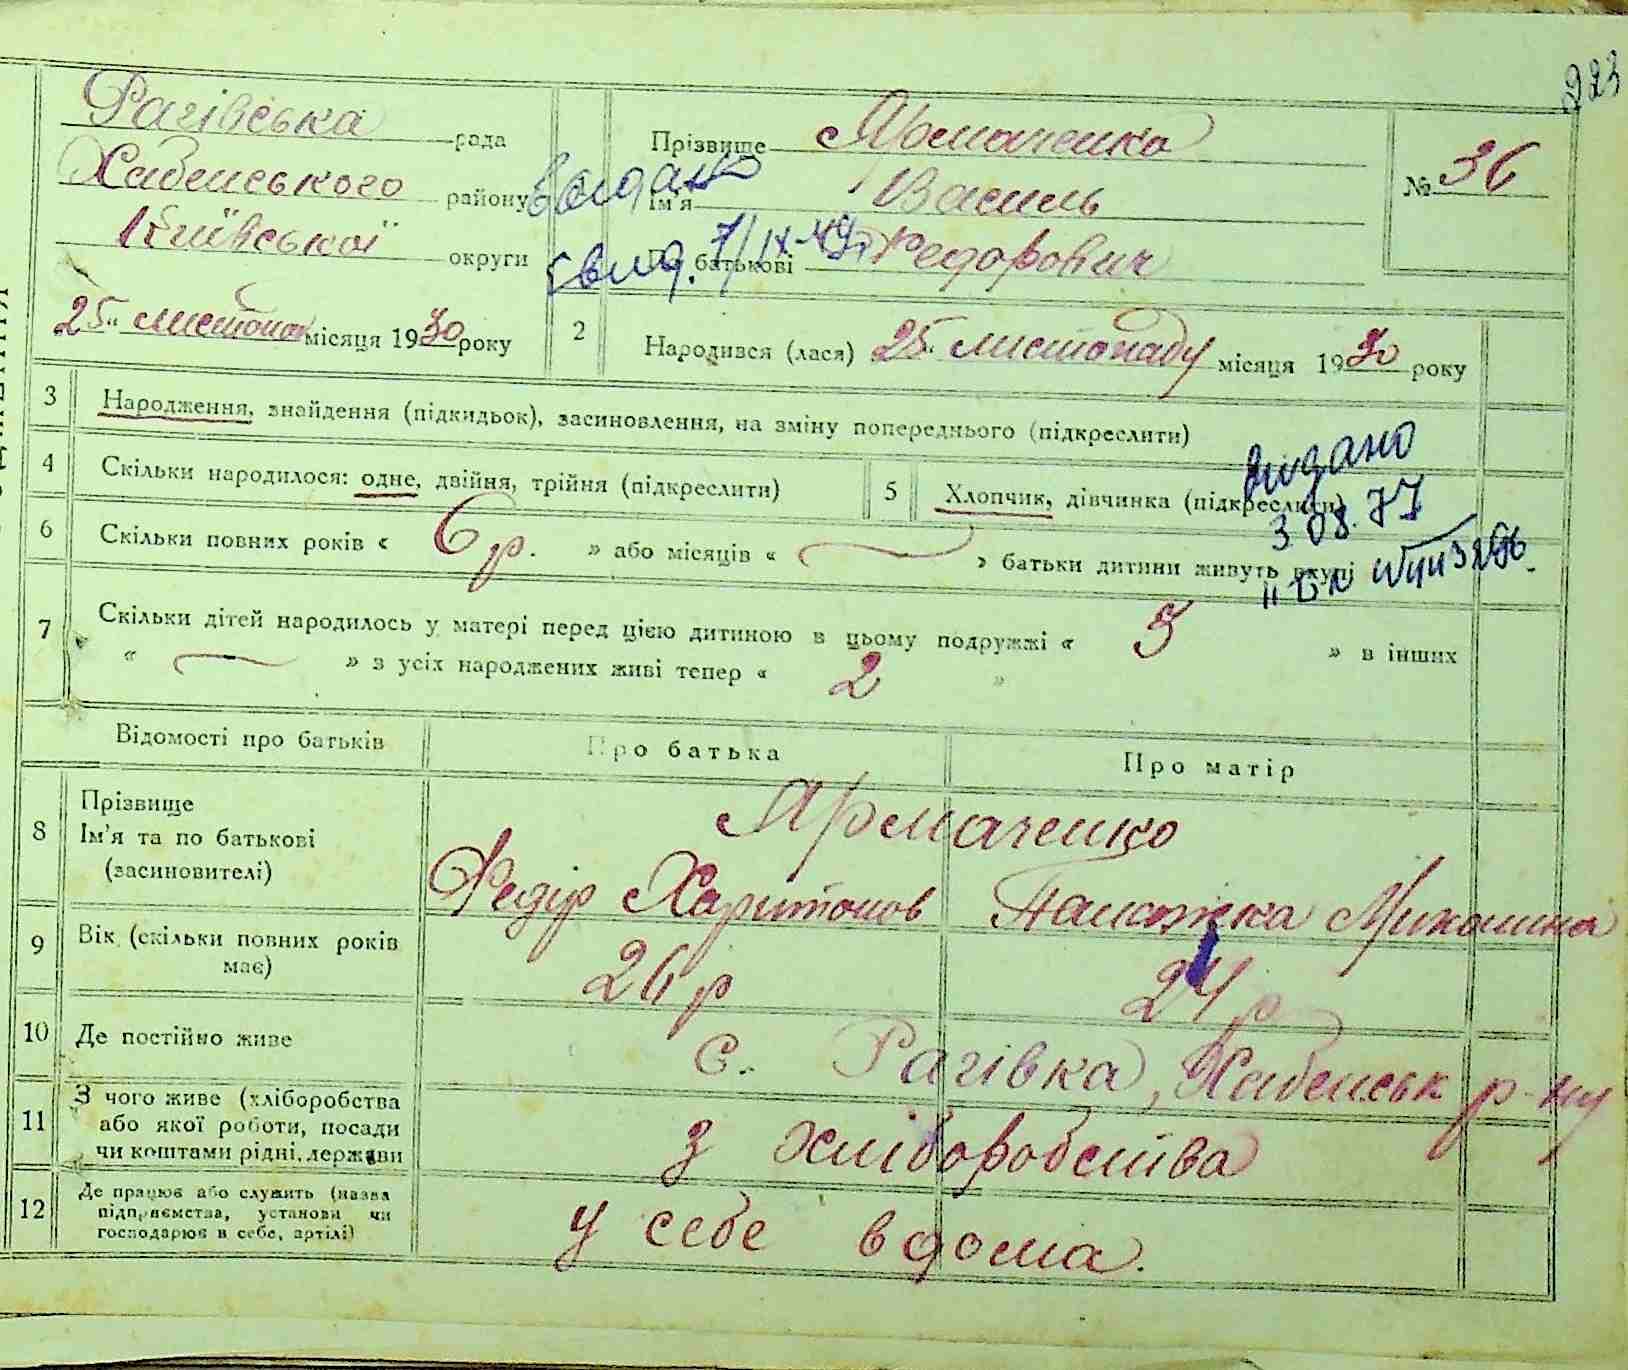 223
Рагівська рада
Хабенського району
Київської округи
Прізвище Ярмаченко
Ім'я Василь
По батькові Федорович
№ 36
Видано
свид. 7/IX-49
25 листопа місяця 1930 року
2 Народився (лася) 25 листопаду місяця 1930 року
3 Народження, знайдення (підкидьок), засиновлення, на зміну попереднього (підкреслити)
4 Скільки народилося: одне, двійня, трійня (підкреслити)
5 Хлопчик, дівчинка (підкреслити)
Видано
3 08. 77
6 Скільки повних років « 6 р. » або місяців « — » батьки дитини живуть вкупі
7 Скільки дітей народилось у матері перед цією дитиною в цьому подружжі « 3 » в інших
« — » з усіх народжених живі тепер « 2 »
Відомості про батьків Про батька Про матір
8 Прізвище Ярмаченко
Ім'я та по батькові
(засиновителі)
Федір Харитонов
9 Вік (скільки повних років має) 26 р 24 р
10 Де постійно живе с. Рагівка, Хабенськ р-ну
11 З чого живе (хліборобства
або якої роботи, посади
чи коштами рідні, держави
з хліборобства
12 Де працює або служить (назва
підприємства, установи чи
господарює в себе, артілі)
у себе вдома.